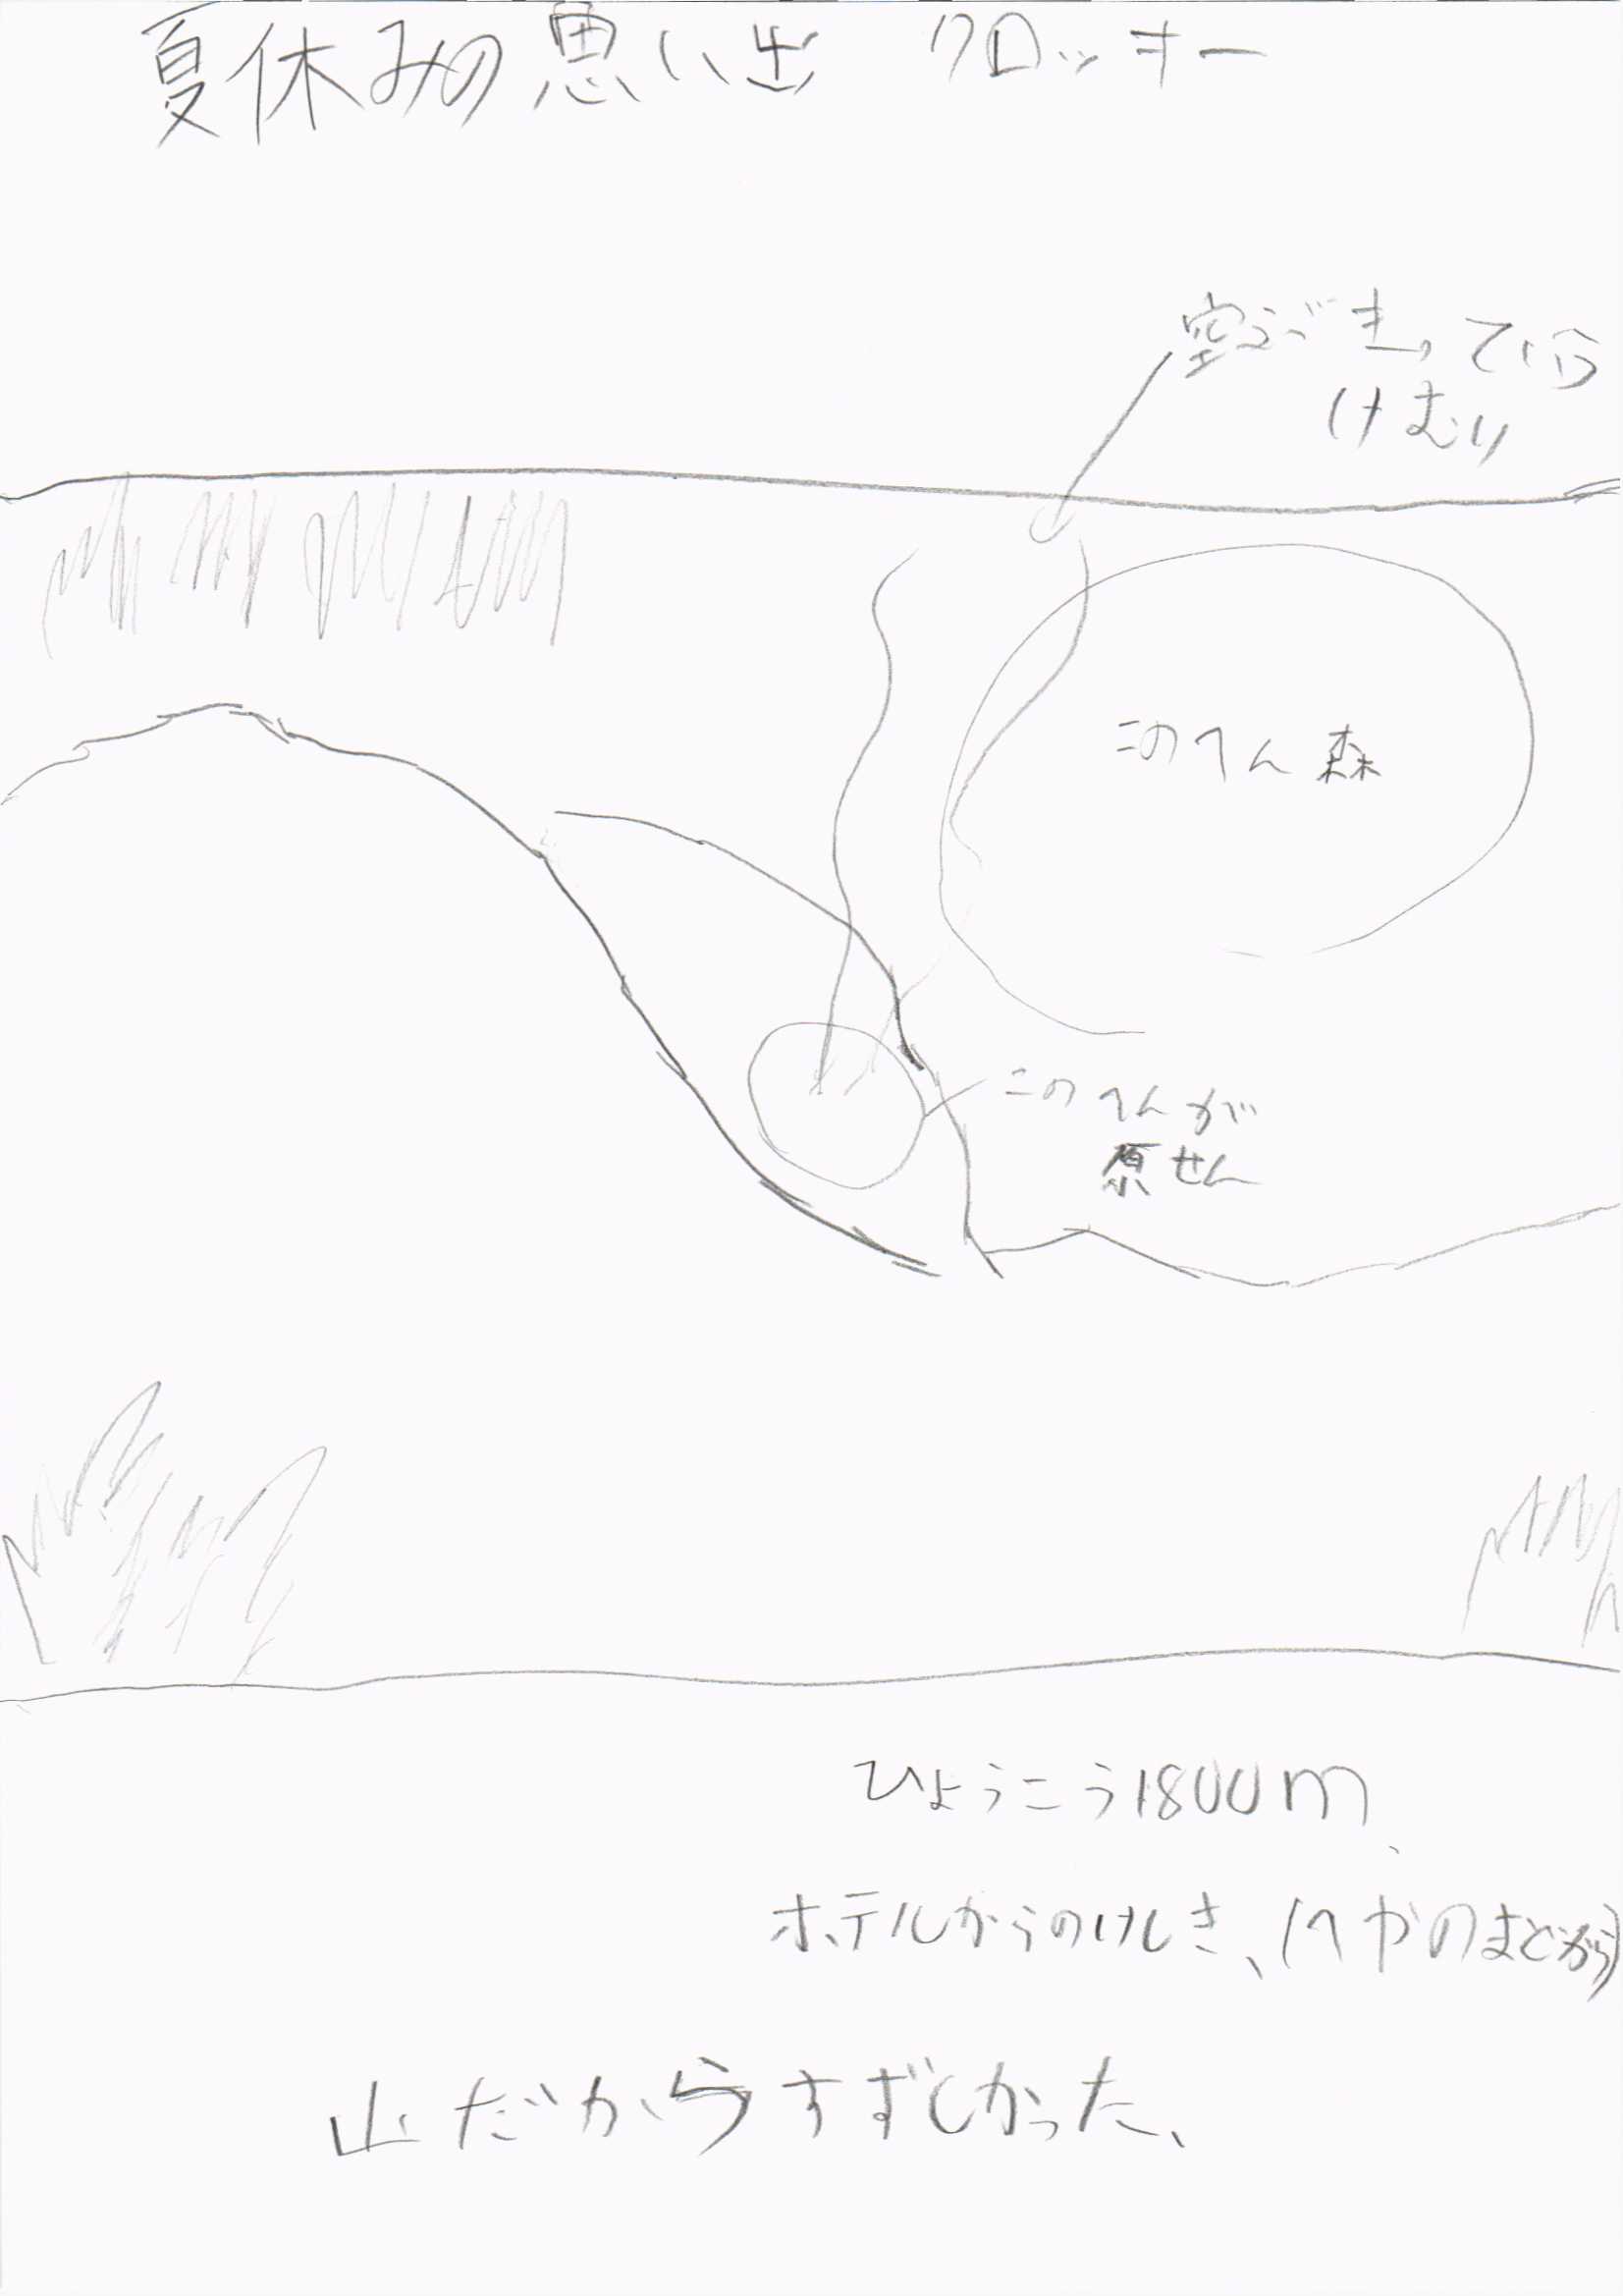 夏休みの思い出 クロッキー
けむり
このへん森
このへんが
原せん
ひょうこう1800m
ホテルからのけしき、(へやのまどから)
山だからすずしかった、